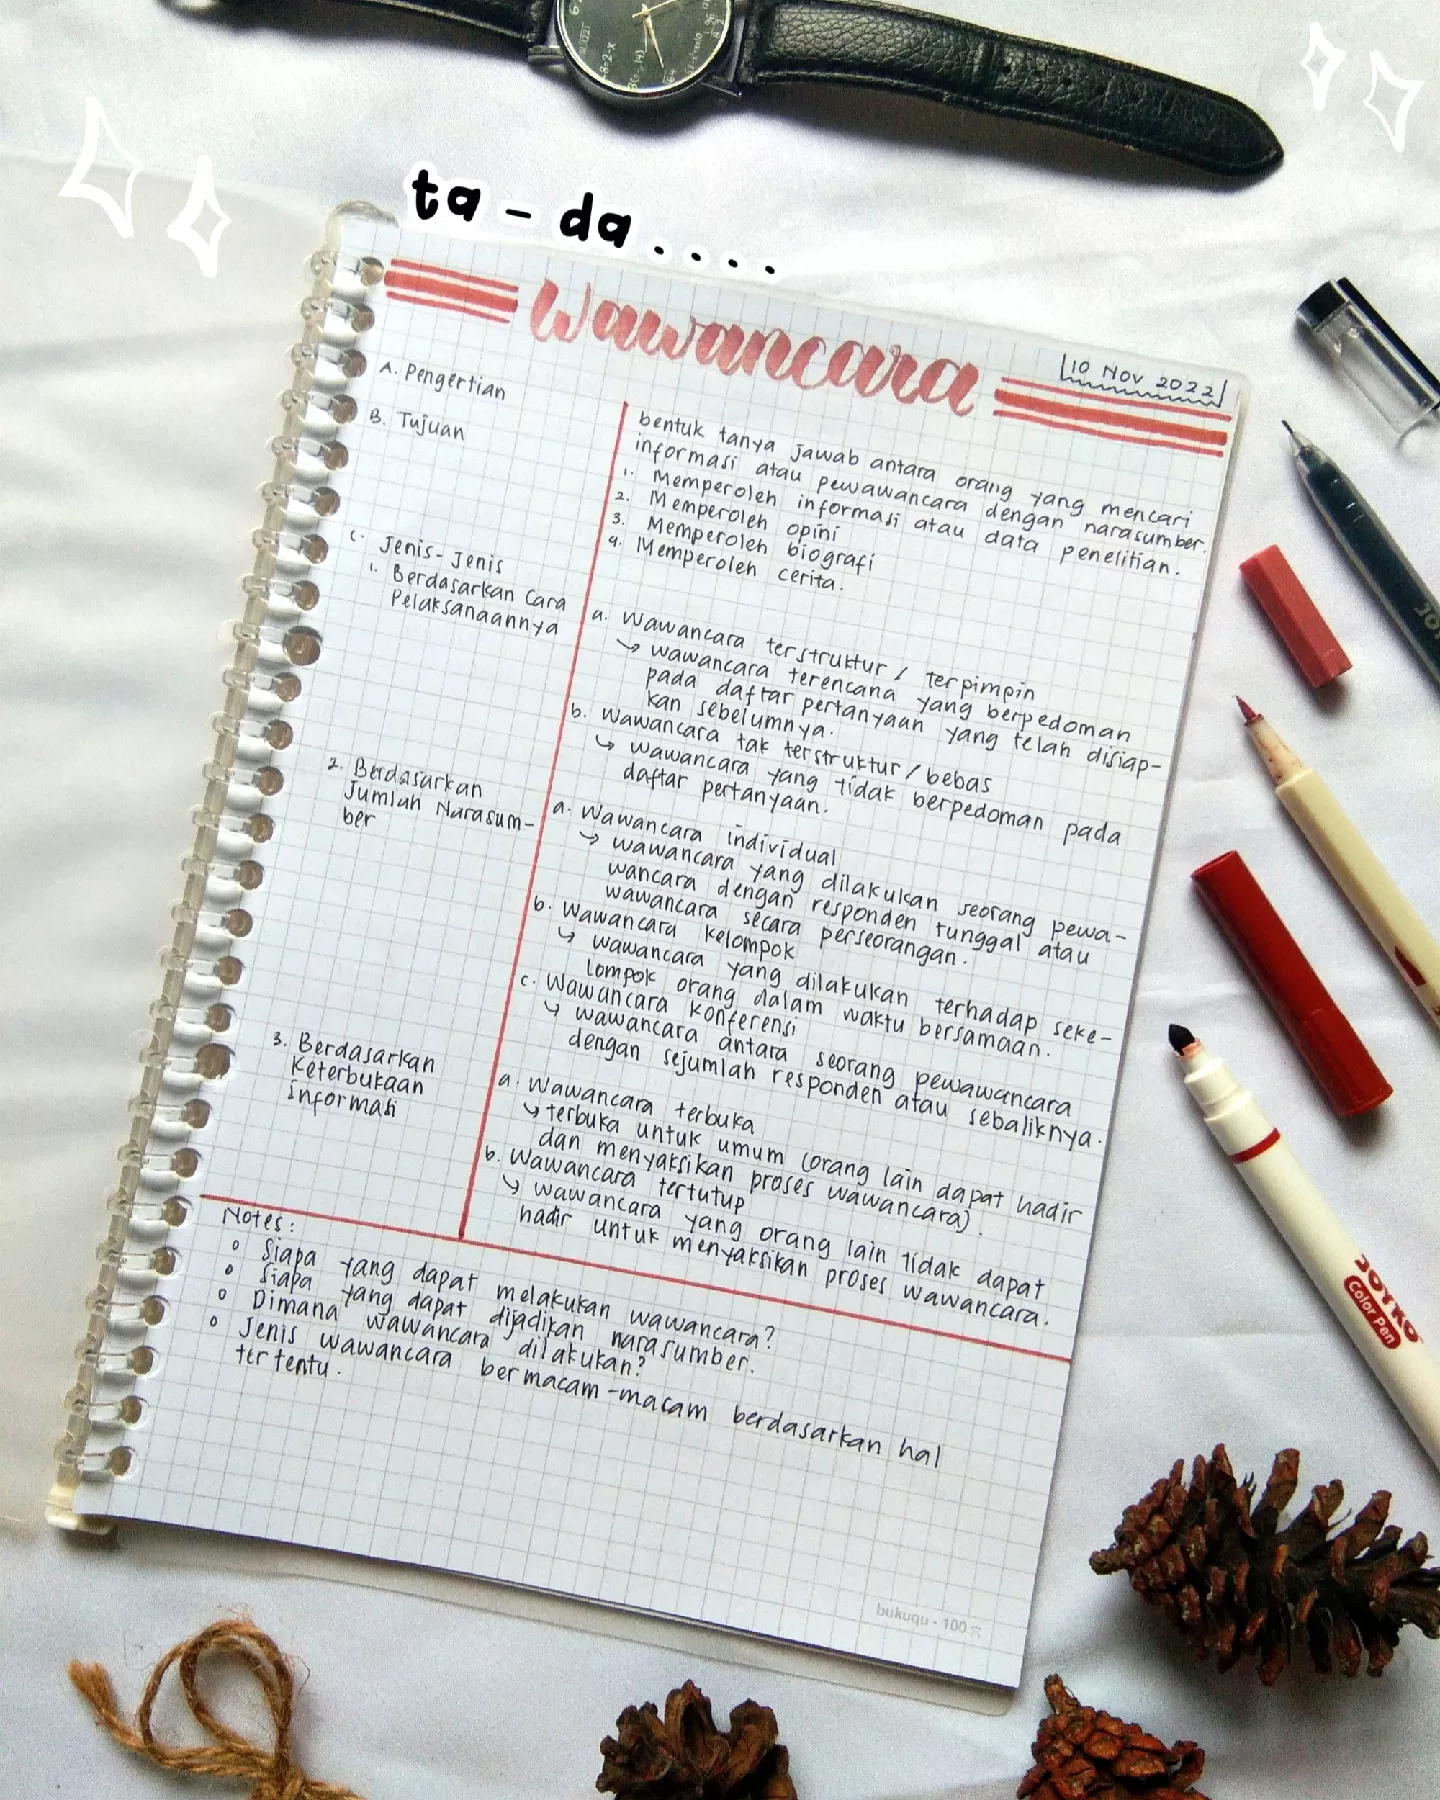 ta-da....
wawancara
10 Nov 2022
A. Pengertian
B. Tujuan
bentuk tanya jawab antara orang yang mencari
informasi atau pewawancara dengan narasumber.
1. Memperoleh informasi atau data penelitian.
2. Memperoleh opini
3. Memperoleh biografi
4. Memperoleh cerita.
C. Jenis-Jenis
1. Berdasarkan Cara
Pelaksanaannya
a. Wawancara terstruktur / terpimpin
↳ wawancara terencana yang berpedoman
pada daftar pertanyaan yang telah disiap-
kan sebelumnya.
b. Wawancara tak terstruktur / bebas
↳ wawancara yang tidak berpedoman pada
daftar pertanyaan.
2. Berdasarkan
Jumlah Narasum-
ber
a. Wawancara individual
↳ wawancara yang dilakukan seorang pewa-
wancara dengan responden tunggal atau
wawancara secara perseorangan.
b. Wawancara kelompok
↳ wawancara yang dilakukan terhadap seke-
lompok orang dalam waktu bersamaan.
c. Wawancara konferensi
↳ wawancara antara seorang pewawancara
dengan sejumlah responden atau sebaliknya.
3. Berdasarkan
Keterbukaan
Informasi
a. Wawancara terbuka
↳ terbuka untuk umum (orang lain dapat hadir
dan menyaksikan proses wawancara).
b. Wawancara tertutup
↳ wawancara yang orang lain tidak dapat
hadir untuk menyaksikan proses wawancara.
Notes:
° Siapa yang dapat melakukan wawancara?
° Siapa yang dapat dijadikan narasumber.
° Dimana wawancara dilakukan?
° Jenis wawancara bermacam-macam berdasarkan hal
tertentu.
bukuqu - 100
JOYKO
Color Pen